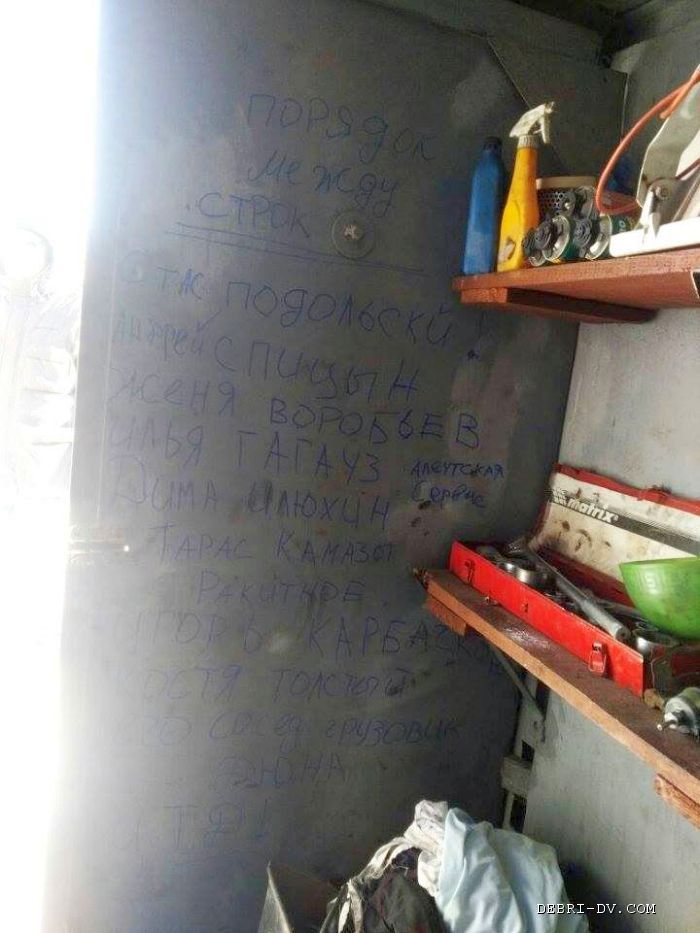 ПОРЯДОК
МЕЖДУ
СТРОК
СТАС ПОДОЛЬСКИЙ!
АНДРЕЙ СПИЦЫН
ЖЕНЯ ВОРОБЬЕВ
ИЛЬЯ ГАГАУЗ АЛЕУТСКАЯ
СЕРВИС
ДИМА ИЛЮХИН
ТАРАС КАМАЗОТ
РАКИТНОЕ
ИГОРЬ
КОСТЯ ТОЛСТЫЙ
ЕГО СОСЕД ГРУЗОВИК
И Т.Д!
matrix
DEBRI-DV.COM